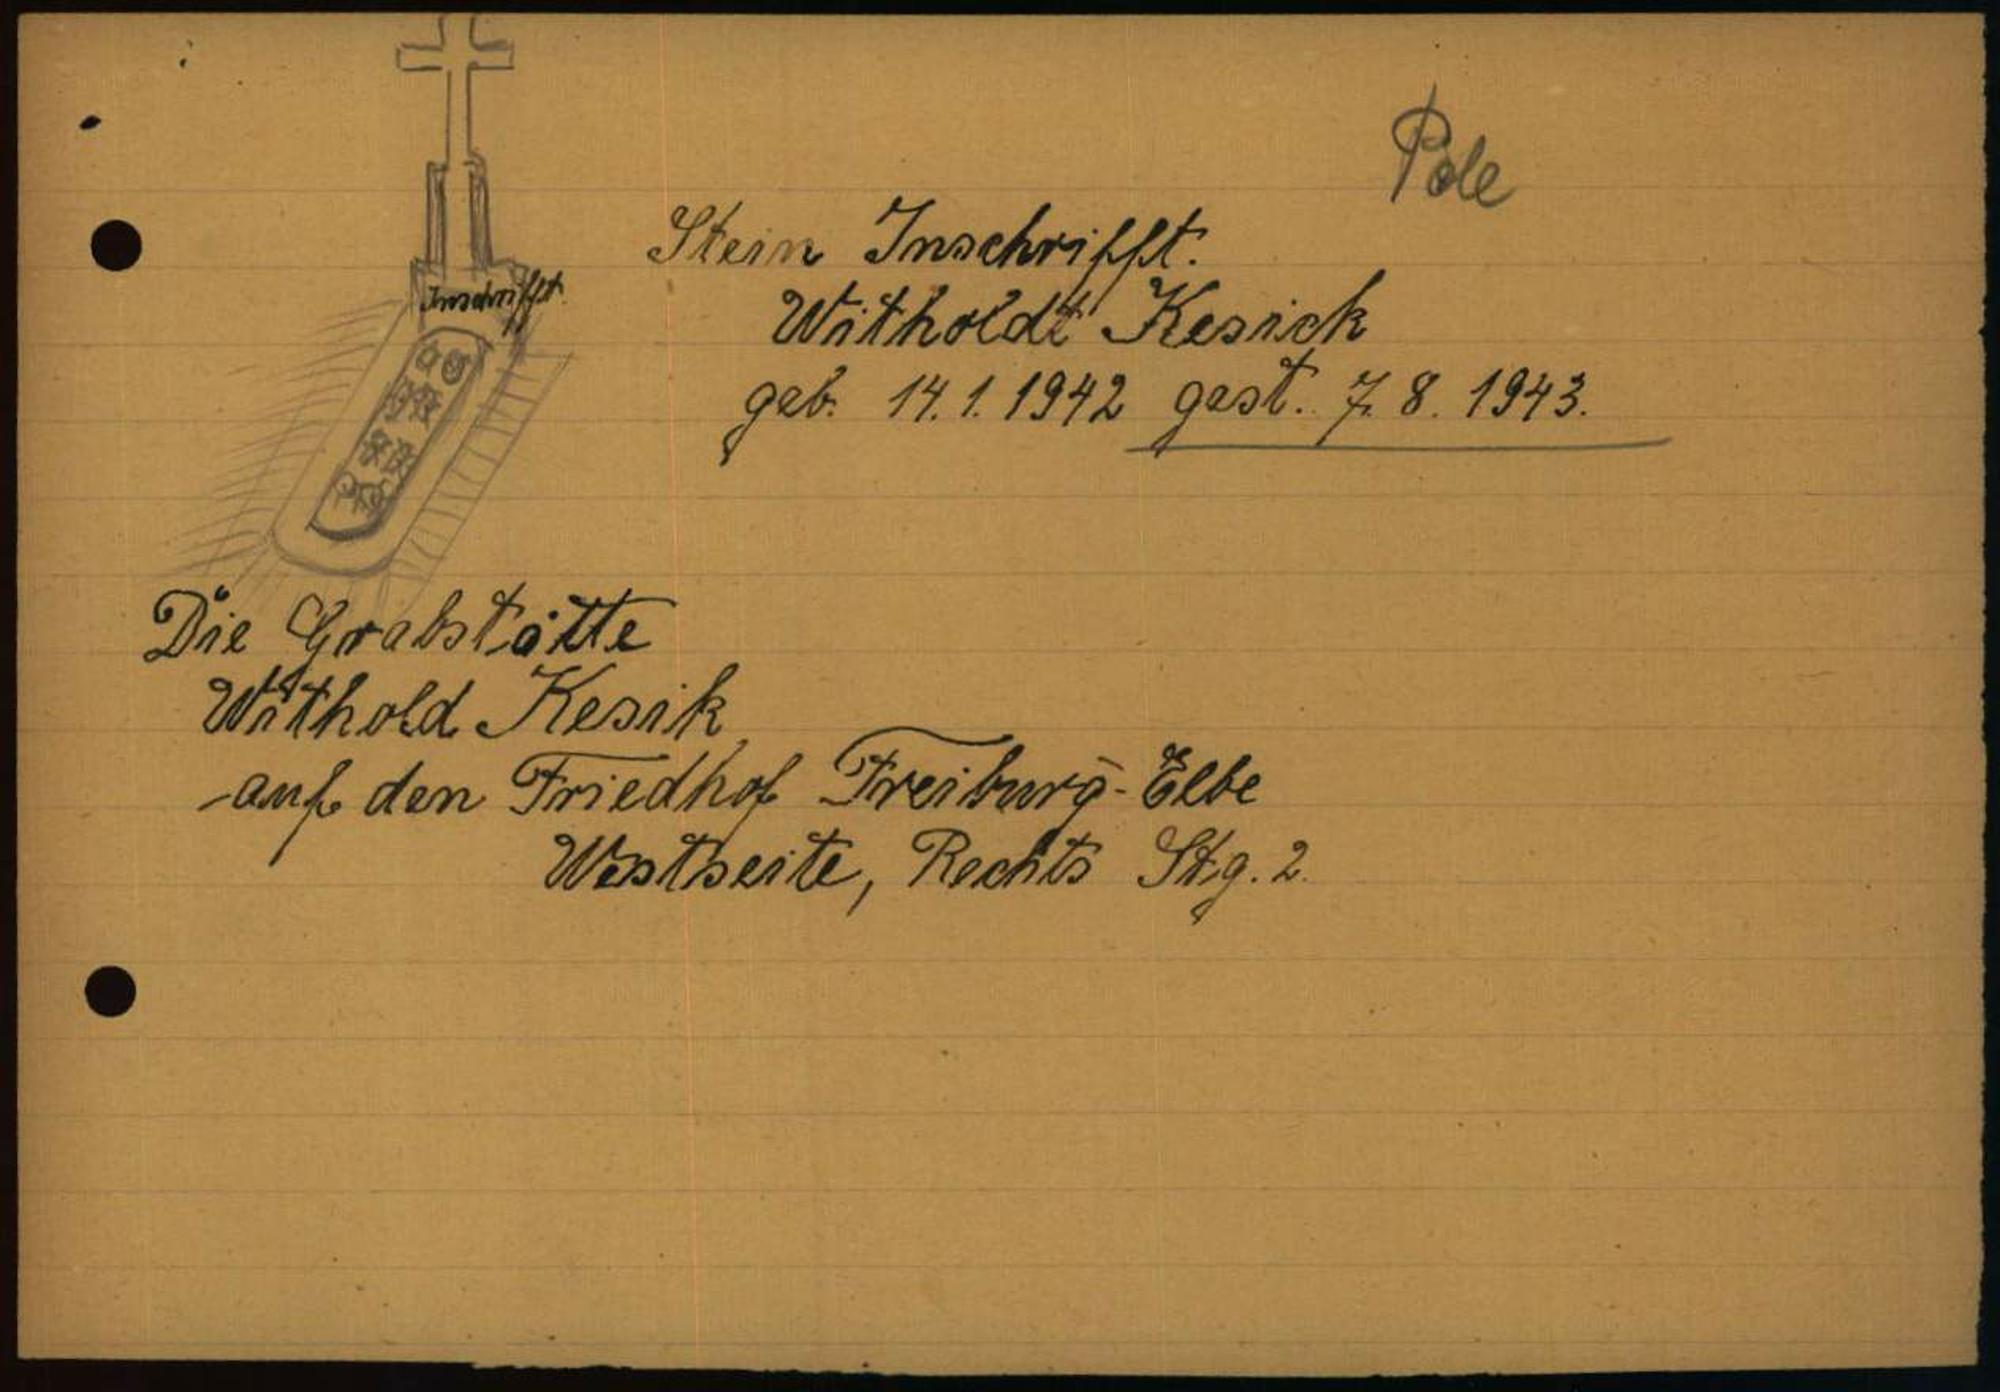 Pole
Stein Inschrifft.
Inschrifft.
Witholdt Kesick
geb. 14.1.1942 gest. 7.8.1943.
Die Grabstätte
Withold Kesik
auf den Friedhof Freiburg-Elbe
Westseite, Rechts Stg. 2.